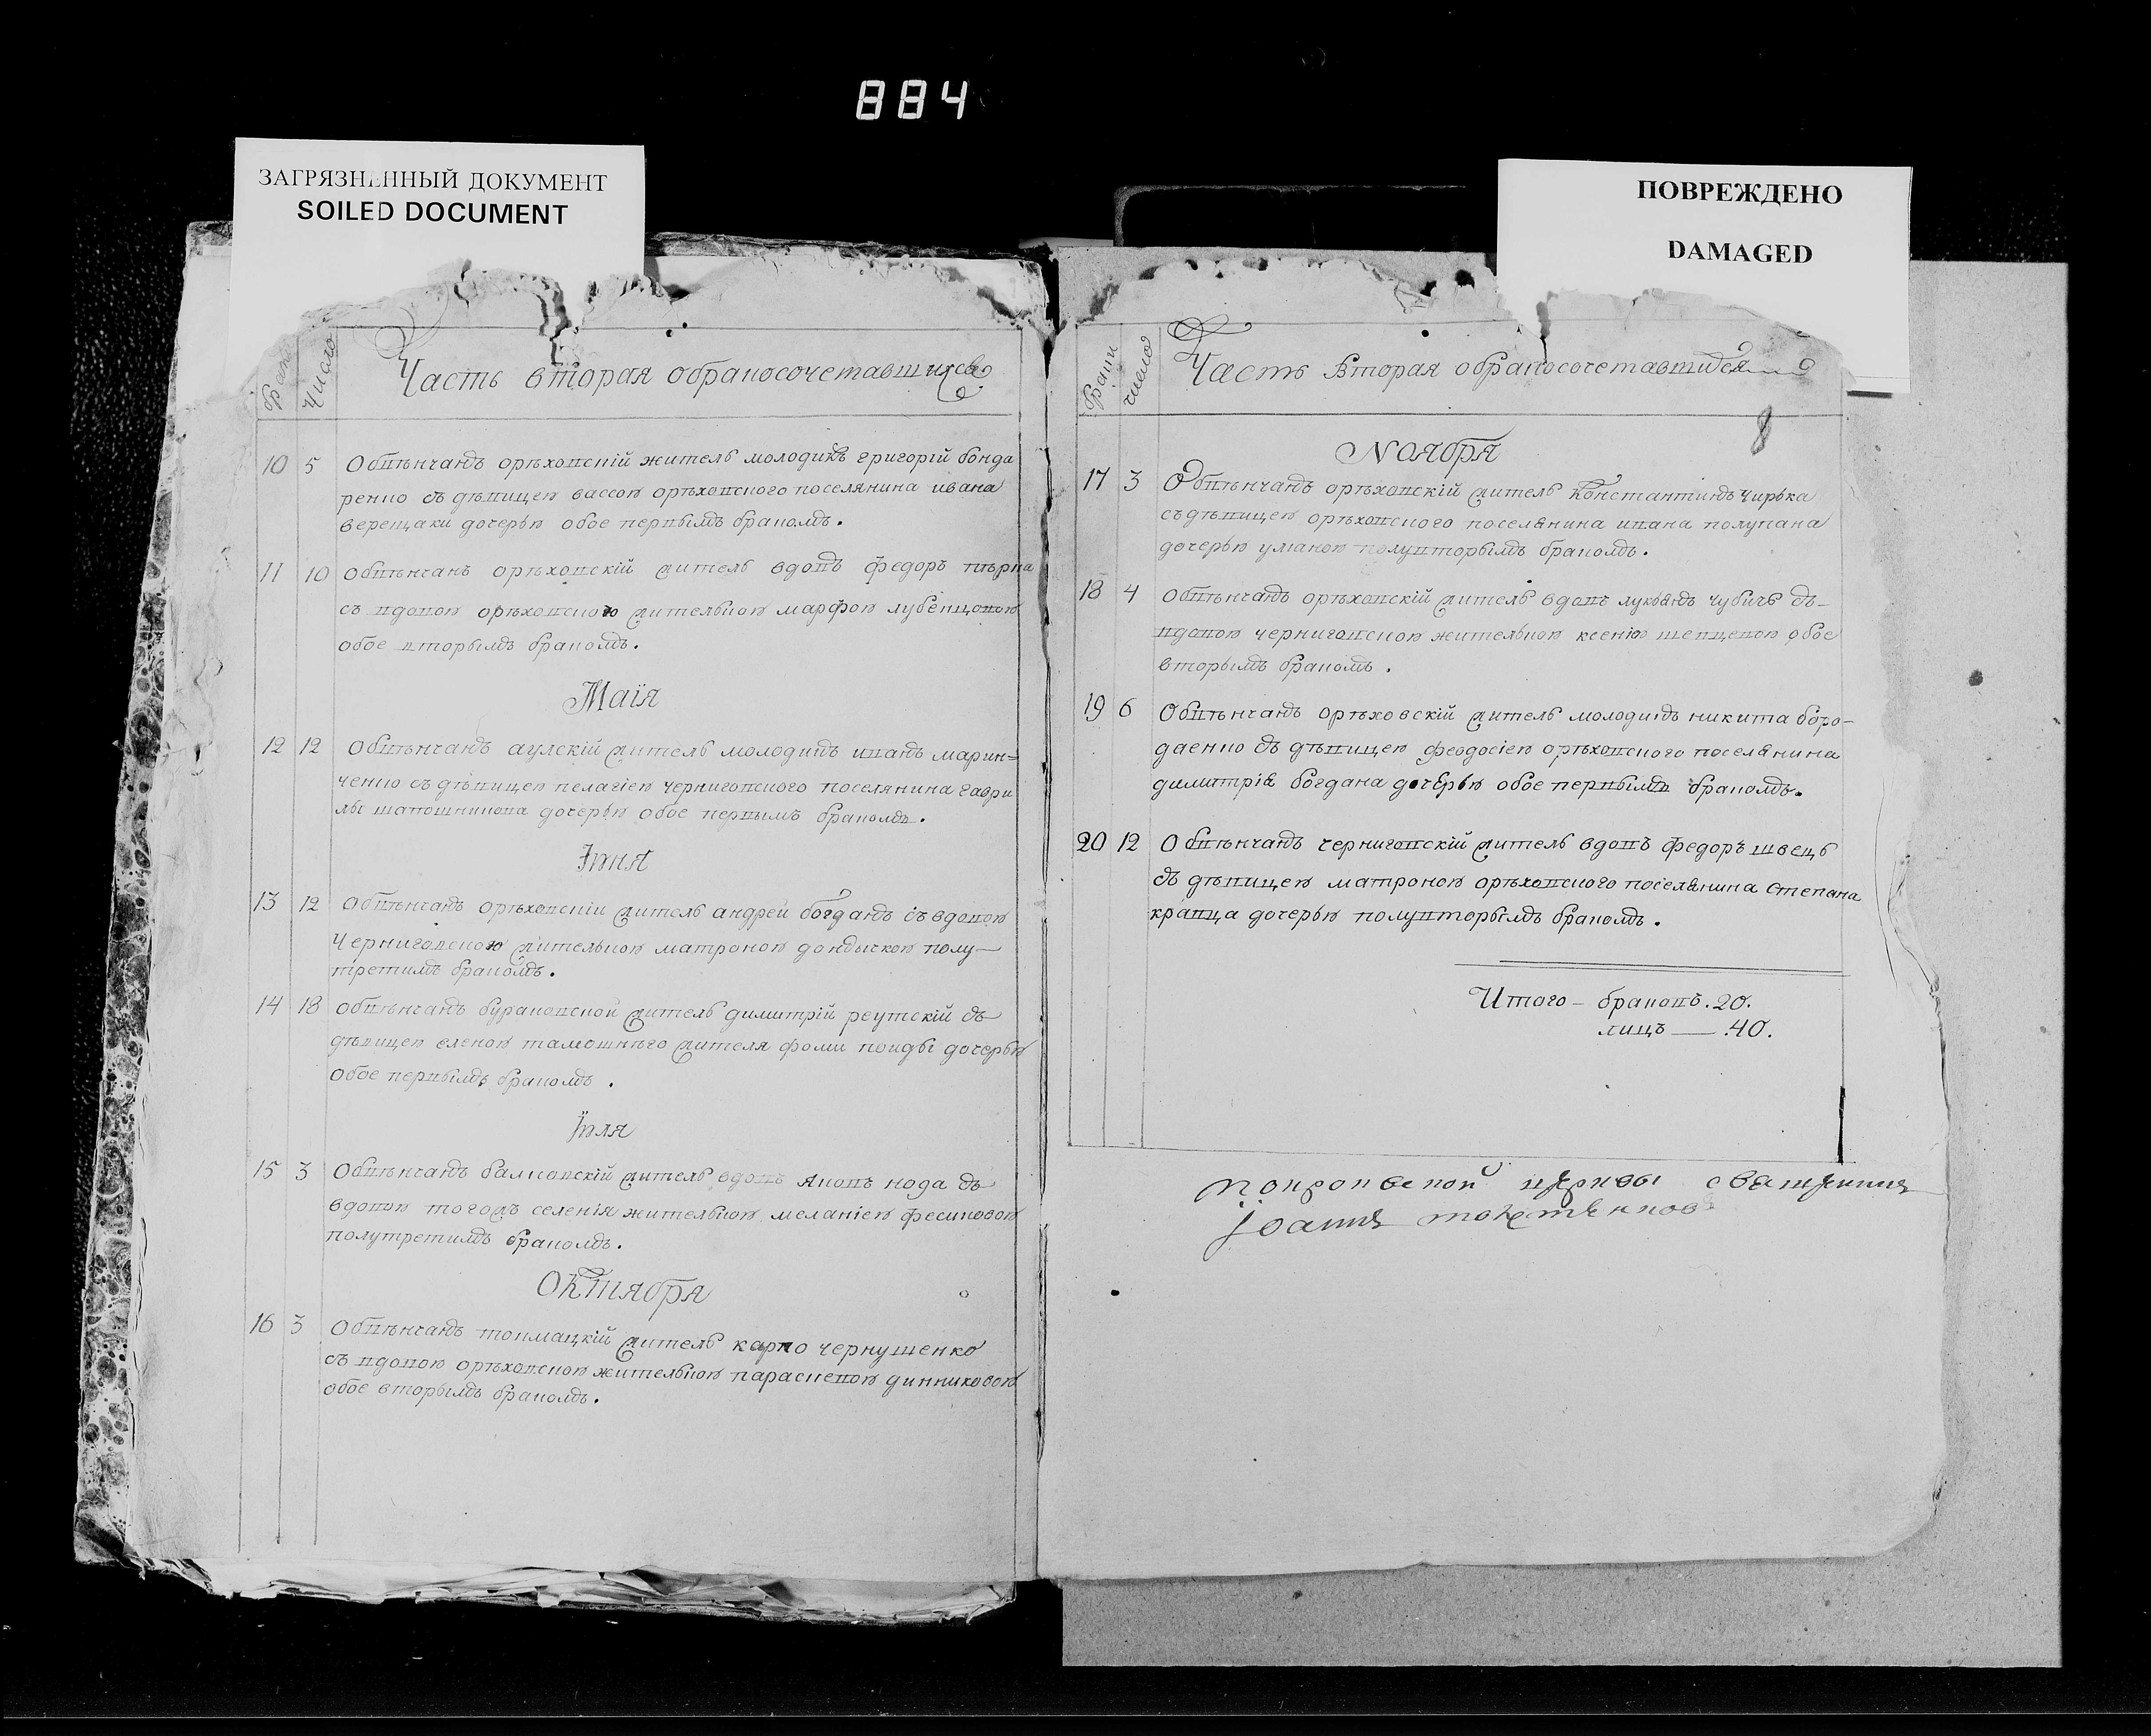 884
ЗАГРЯЗНЕННЫЙ ДОКУМЕНТ
SOILED DOCUMENT
ПОВРЕЖДЕНО
DAMAGED
Числo
Часть вторая обракосочетавшихся
10 5 Обвѣнчанъ орѣховскій житель молодикъ григорій бонда
ренко съ дѣвицею вассою орѣховского поселянина ивана
верещаки дочерью обое первымъ бракомъ.
11 10 Обвѣнчанъ орѣховскій житель вдовъ федоръ
съ вдовою орѣховскою жителькою марфою лубенцовою
обое вторымъ бракомъ.
Маїя
12 12 Обвѣнчанъ аулскій житель молодикъ иванъ марин=
ченко съ дѣвицею пелагіею черниговского поселянина гаври
лы шапошникова дочерью обое первымъ бракомъ.
Іюня
13 12 Обвѣнчанъ орѣховскій житель андрей богданъ съ вдовою
Черниговскою жителькою матроною дондычкою полу-
третимъ бракомъ.
14 18 Обвѣнчанъ бурановской житель димитрій реутскій съ
дѣвицею еленою тамошнѣго жителя фоми дочерью
обое первымъ бракомъ.
Іюля
15 3 Обвѣнчанъ балковскій житель вдовъ яковъ кода съ
вдовою тогожъ селенія жителькою меланіею фесиковою
полутретимъ бракомъ.
Октября
16 3 Обвѣнчанъ токмацкій житель карпо чернушенко
съ вдовою орѣховскою жителькою параскевою динниковою
обое вторымъ бракомъ.
Браки
число
Часть Вторая обракосочетавшихся
Ноября
17 3 Обвѣнчанъ орѣховскій житель Константинъ чирька
съ дѣвицею орѣховского поселянина ивана полупана
дочерью улианою полувторымъ бракомъ.
18 4 Обвѣнчанъ орѣховскій житель вдовъ лукьянъ чубичъ съ-
вдовою черниговскою жителькою ксенію шевцевою обое
вторымъ бракомъ.
19 6 Обвѣнчанъ орѣховскій житель молодикъ никита боро-
даенко съ дѣвицею феодосіею орѣховского поселянина
димитрія богдана дочерью обое первымъ бракомъ.
20 12 Обвѣнчанъ черниговскій житель вдовъ федоръ швець
съ дѣвицею матроною орѣховского поселянина Степана
кравца дочерью полувторымъ бракомъ.
Итого - браковъ. 20.
лицъ — 40.
Покровской церкви священник
Іоанн